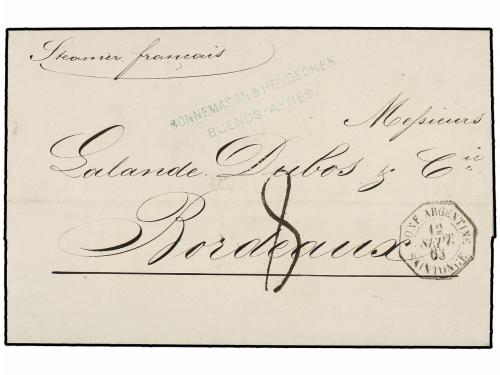 Steamer français
BONNEMASON & HEYDECKER
BUENOS-AYRES.
Messieurs
Lalande Dubos & Cie
Bordeaux
8
CONF. ARGENTINE
12
SEPT.
63
SAINTONGE